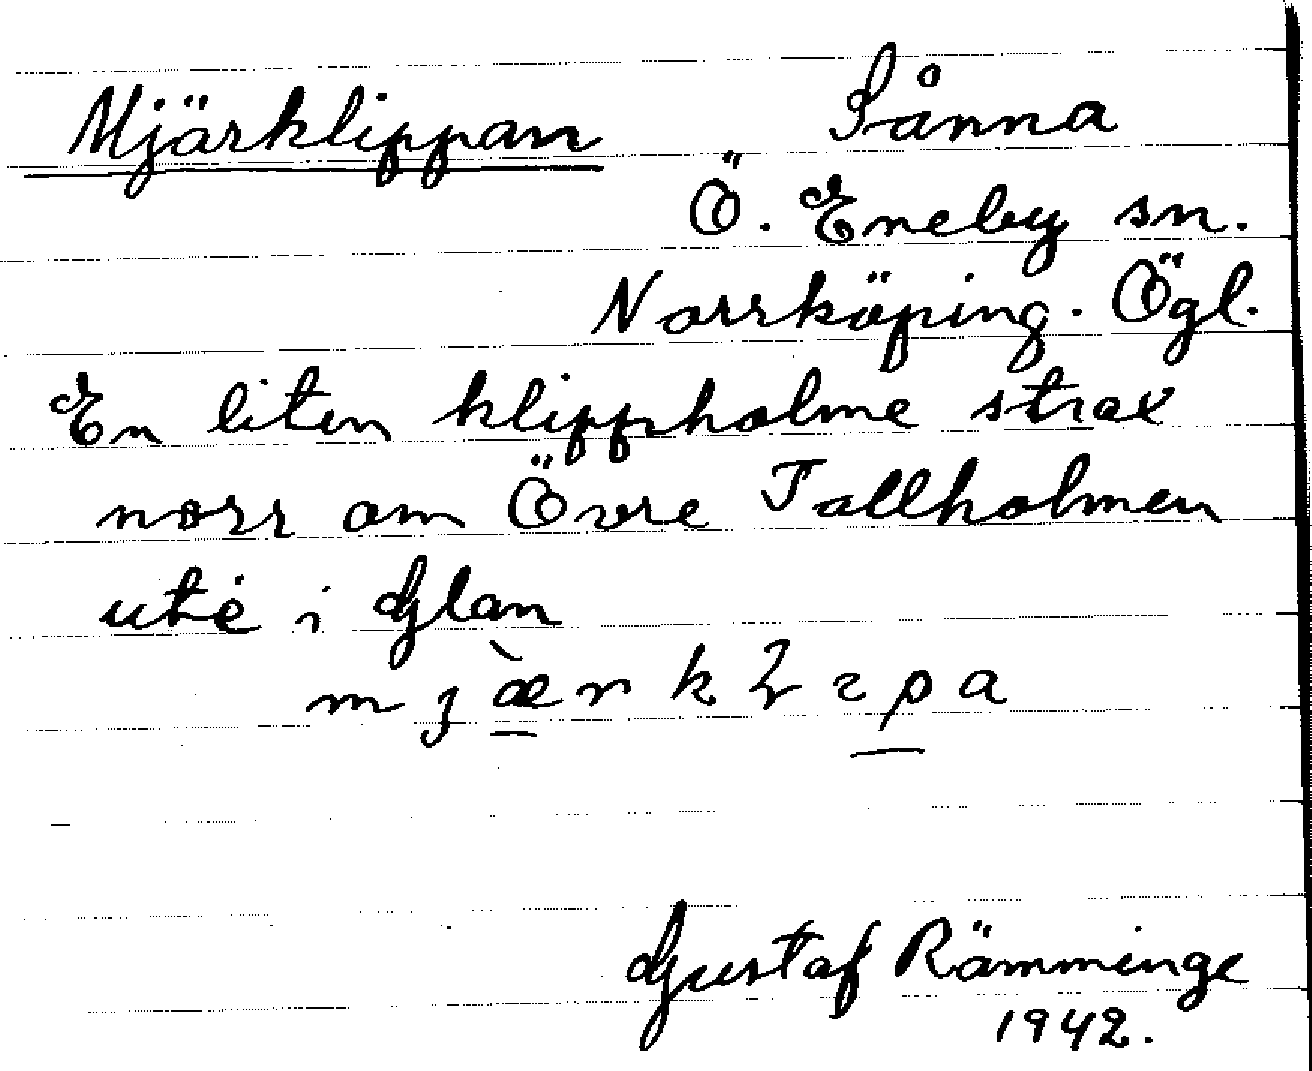 Mjärklippan Sånna
Ö. Eneby sn.
Norrköping. Ögl.
En liten klippholme strax
norr om Övre Tallholmen
ute i Glan
Gustaf Rämminge
1942.